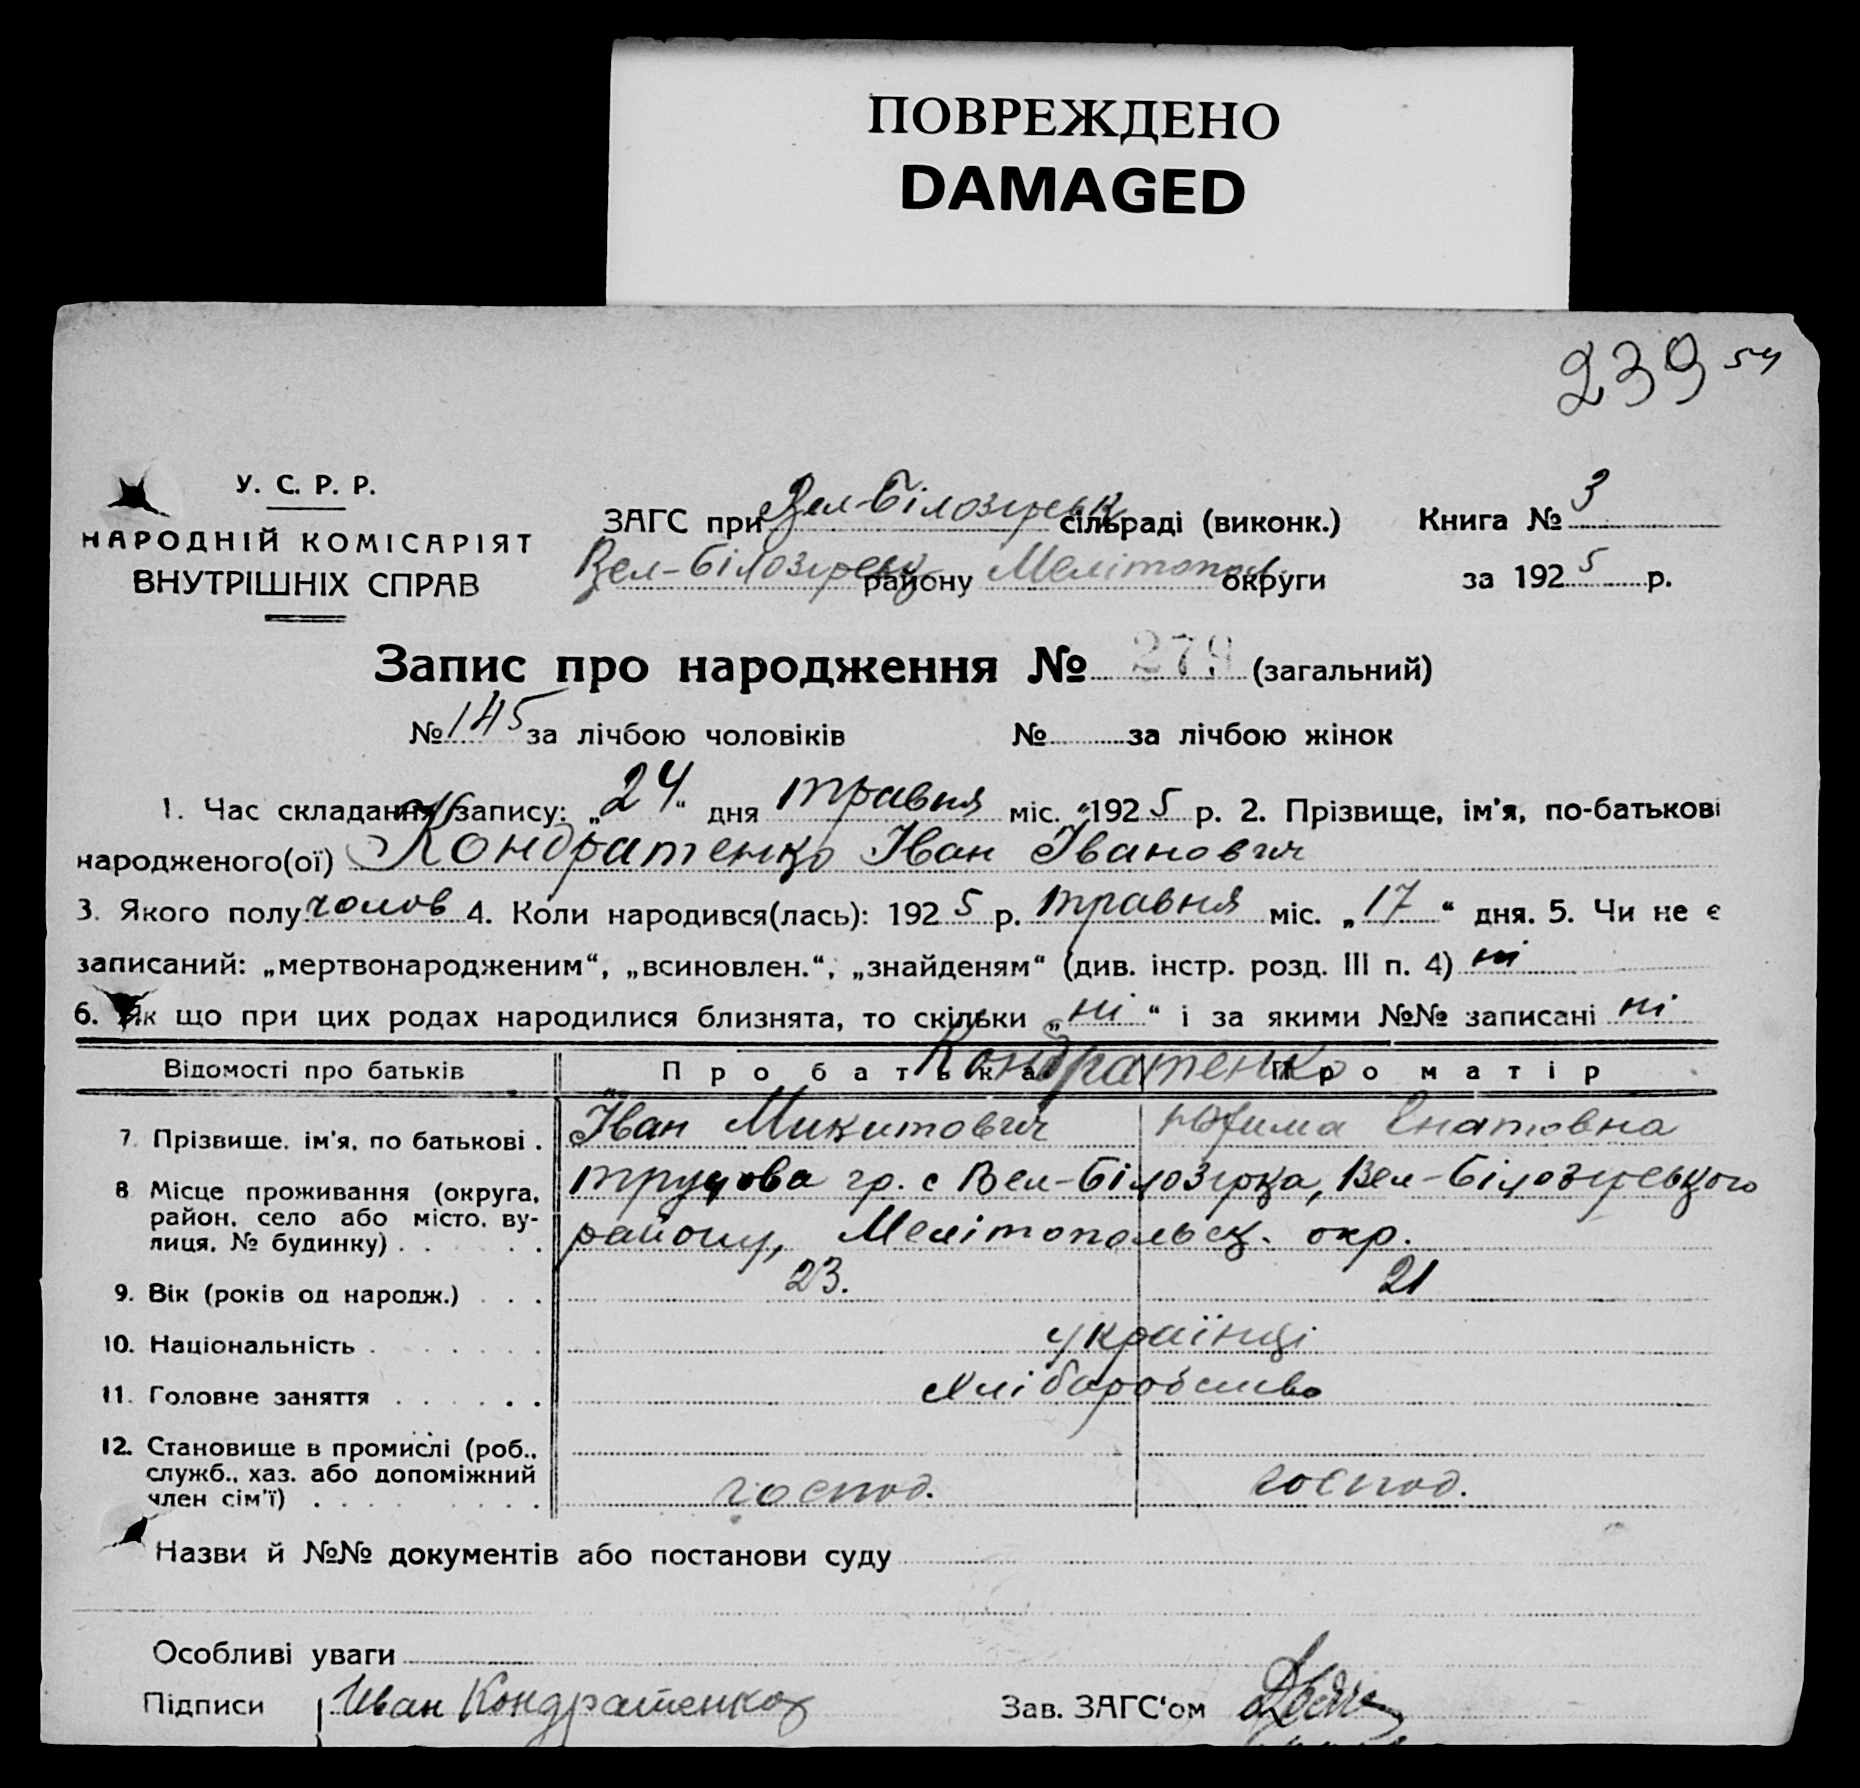 ПОВРЕЖДЕНО
DAMAGED
239 54
У. С. Р. Р.
НАРОДНІЙ КОМІСАРІЯТ
ВНУТРІШНІХ СПРАВ
ЗАГС при Вел-Білозірськ сільраді (виконк.) Книга № 3
Вел-Білозірськ району Мелітопол округи за 1925 р.
Запис про народження № 279 (загальний)
№ 145 за лічбою чоловіків № за лічбою жінок
1. Час складання запису: „24“ дня травня міс. 1925 р. 2. Прізвище, ім'я, по-батькові
народженого(ої) Кондратенко Іван Іванович
3. Якого полу чолов 4. Коли народився(лась): 1925 р. травня міс. „17“ дня. 5. Чи не є
записаний: „мертвонародженим“, „всиновлен.“, „знайденям“ (див. інстр. розд. III п. 4) ні
6. Як що при цих родах народилися близнята, то скільки „ні“ і за якими №№ записані ні
Відомості про батьків Про батька Про матір
Кондратенко
7. Прізвище, ім'я, по батькові . Іван Микитович Юхима Гнатовна
8 Місце проживання (округа, район, село або місто, вулиця, № будинку) . . . . гр. с Вел-Білозірка, Вел-Білозірського
району, Мелітопольськ. окр.
9. Вік (років од народж.) . . . 23. 21
10. Національність . . . . . . . українці
11. Головне заняття . . . . . . Хліборобство
12. Становище в промислі (роб.,
служб., хаз. або допоміжний
член сім'ї) . . . . . . . . господ. господ.
Назви й №№ документів або постанови суду
Особливі уваги
Підписи Иван Кондратенко Зав. ЗАГС'ом